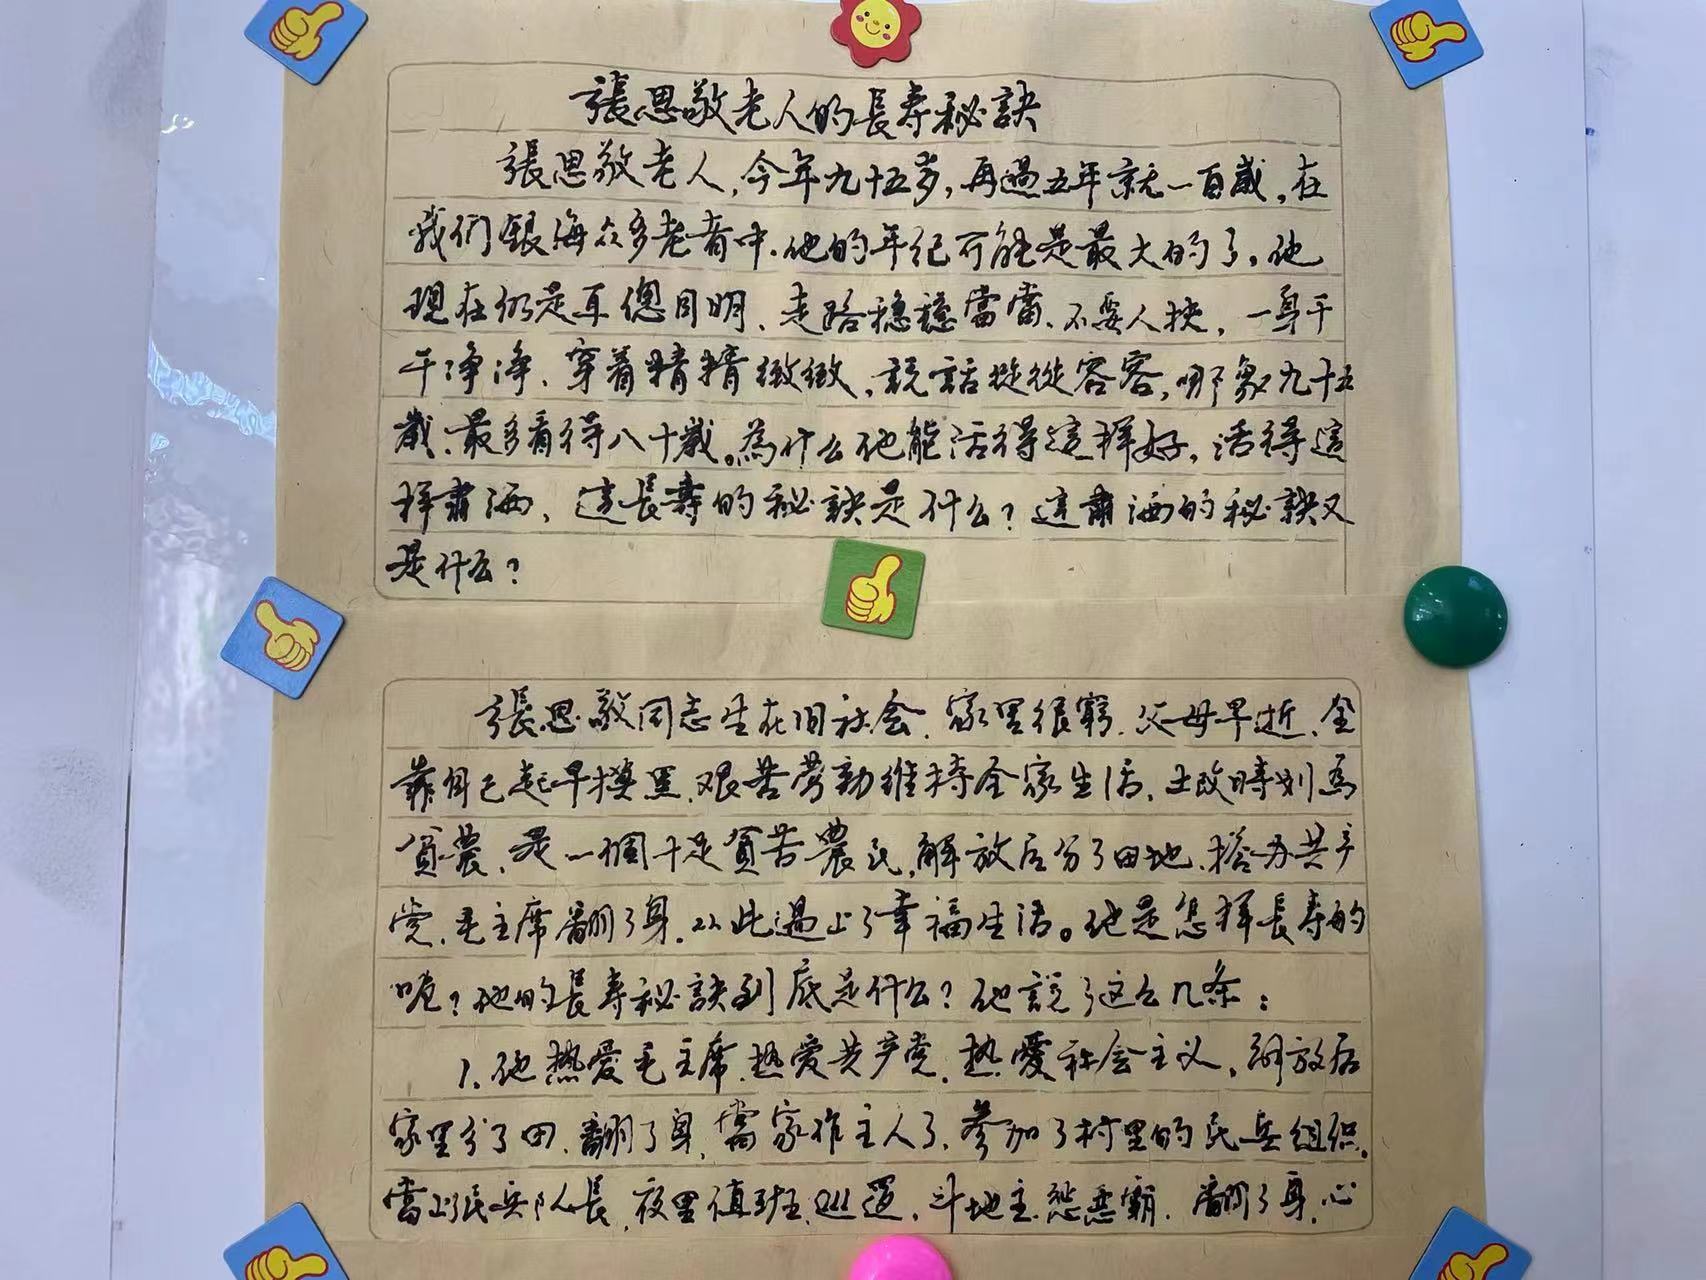 張思敬老人的長寿秘訣
張思敬老人，今年九十五岁，再過五年就一百歲，在
我们銀海众多老者中，他的年纪可能是最大的了。他
現在仍是耳聰目明、走路稳稳當當、不要人扶，一身干
干净净、穿着精精緻緻，説話從從容容，哪象九十五
歲、最多看得八十歲。為什么他能活得這样好，活得這
样肅洒、這長壽的秘訣是什么？這肅洒的秘訣又
是什么？
張思敬同志生在旧社会，家里很窮，父母早逝、全
靠自己起早摸黑，艰苦勞動維持全家生活，土改時划為
貧農，是一個十足貧苦農民，解放后分了田地，搭帮共产
党，毛主席翻了身，从此過上了幸福生活。他是怎样長寿的
呢？他的長寿秘訣到底是什么？他説了这么几条：
1、他热爱毛主席，热爱共产党，热愛社会主义，解放后
家里分了田，翻了身，當家作主人了，參加了村里的民兵组织，
當上民兵队長，夜里值班、巡邏，斗地主、惩恶霸，翻了身，心